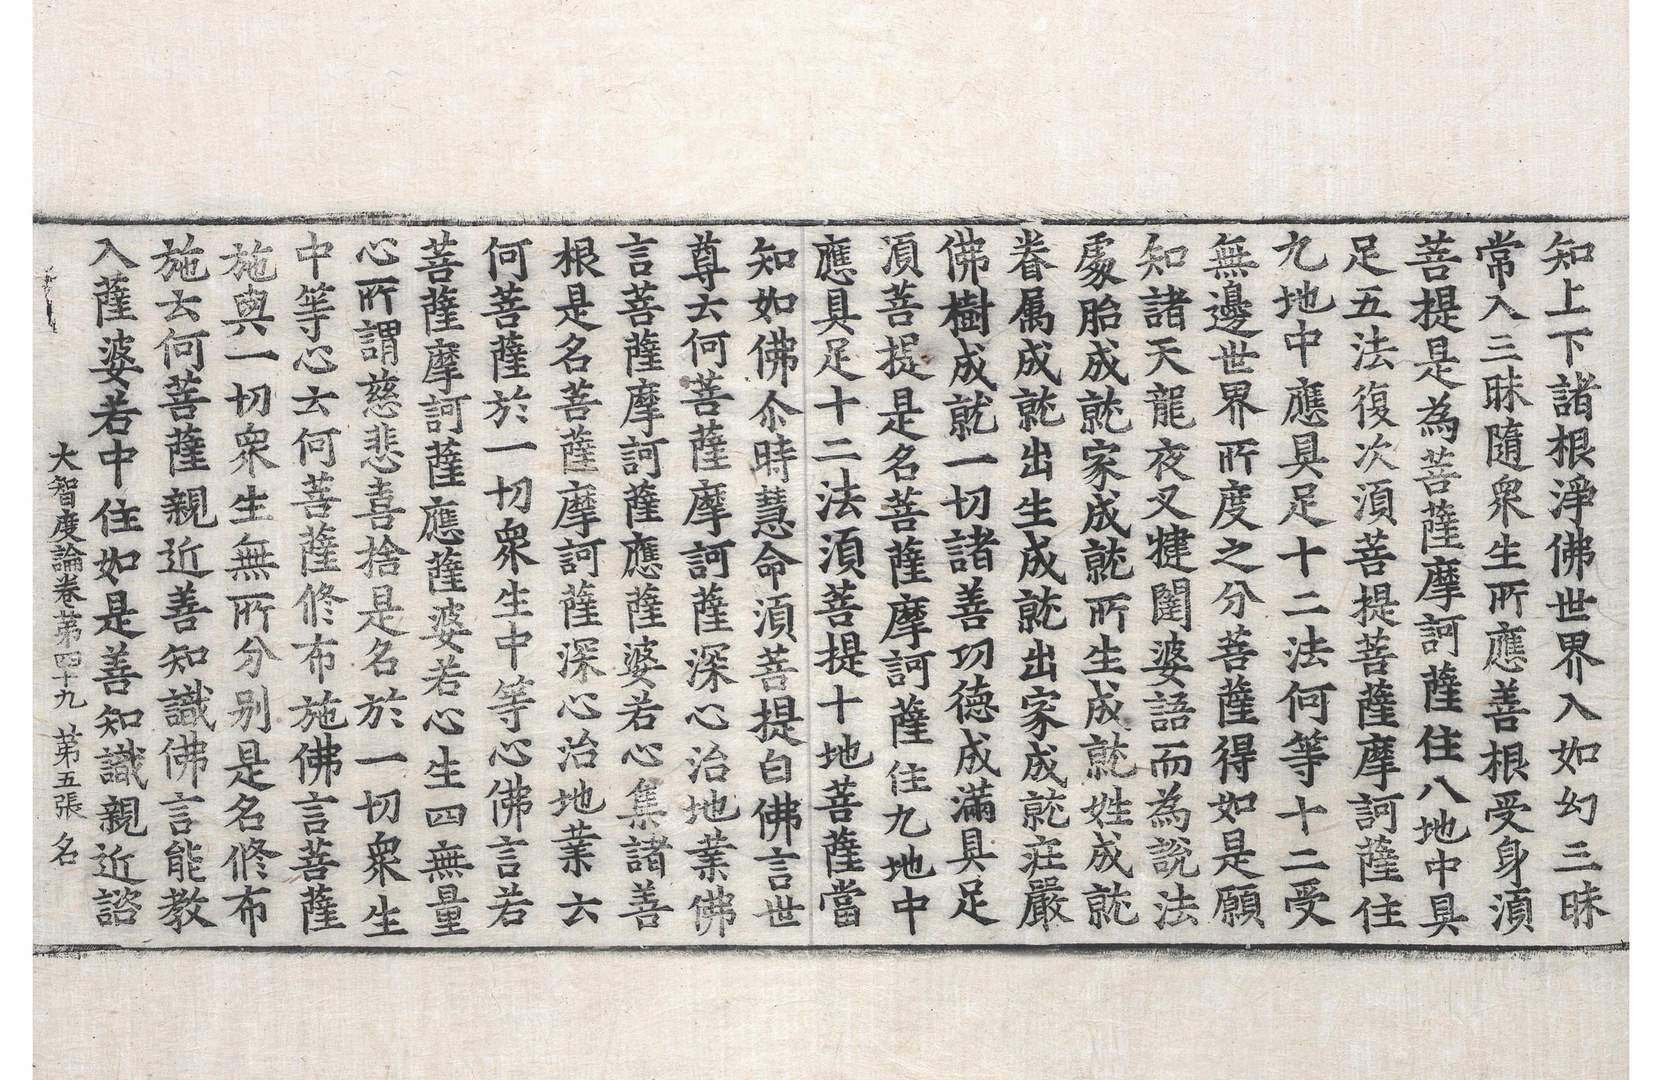 知上下諸根淨佛世界入如幻三昧
常入三昧隨衆生所應善根受身湏
菩提是為菩薩摩訶薩住八地中具
足五法復次湏菩提菩薩摩訶薩住
九地中應具足十二法何等十二受
無邊世界所度之分菩薩得如是願
知諸天龍夜叉揵闥婆語而為說法
處胎成就家成就所生成就姓成就
眷属成就出生成就出家成就莊嚴
佛樹成就一切諸善功德成滿具足
湏菩提是名菩薩摩訶薩住九地中
應具足十二法湏菩提十地菩薩當
知如佛尒時慧命湏菩提白佛言世
尊云何菩薩摩訶薩深心治地業佛
言菩薩摩訶薩應薩婆若心集諸善
根是名菩薩摩訶薩深心治地業云
何菩薩於一切衆生中等心佛言若
菩薩摩訶薩應薩婆若心生四無量
心所謂慈悲喜捨是名於一切衆生
中等心云何菩薩修布施佛言菩薩
施與一切衆生無所分別是名修布
施云何菩薩親近善知識佛言能教
入薩婆若中住如是善知識親近諮
大智度論卷第四十九 第五張 名